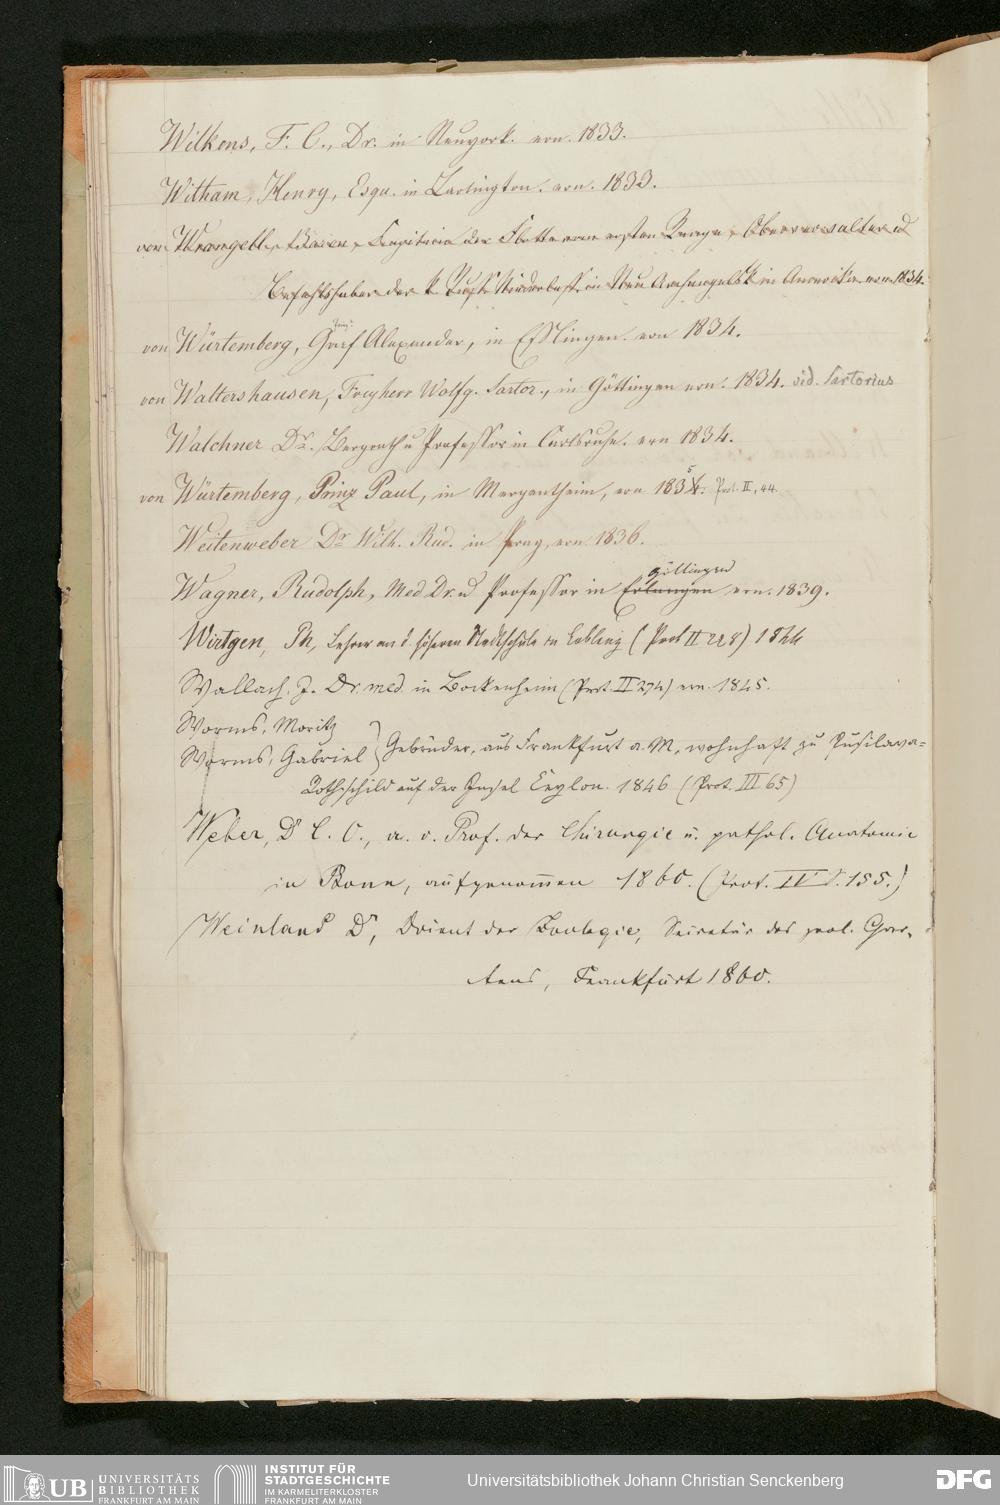 Wilkens, F. C., Dr. in Neuyork. ern. 1833.
Witham, Henry, Esqu. in Lartington. ern. 1833.
von Wrangell, Baron, Kapitain der Flotte vom ersten Range, Oberverwalter u
Befehlshaber der k. Russ. Niederlass. in Neu Archangelsk in Amerika ern. 1834.
von Würtemberg, Graf Alexander, in Esslingen. ern 1834.
von Waltershausen, Freyherr Wolfg. Sartor., in Göttingen ern. 1834. vid. Sartorius
Walchner Dr. Bergrath u Professor in Carlsruhe. ern 1834.
von Würtemberg, Prinz Paul, in Mergentheim, ern 1835. Prot. II, 44.
Weitenweber Dr Wilh. Rud. in Prag, ern. 1836.
Göttingen
Wagner, Rudolph, Med Dr. u Professor in Erlangen ern. 1839.
Wirtgen, Ph, Lehrer an d. höheren Stadtschule in Coblenz (Prot II 228) 1844
Wallach. J. Dr. med. in Bockenheim (Prot. II 274) ern. 1845.
Worms, Moritz
Worms, Gabriel } Gebrüder, aus Frankfurt a. M, wohnhaft zu Pusilava=
Rothschild auf der Insel Ceylon. 1846 (Prot. III 65)
Weber, Dr C. O., a. o. Prof. der Chirurgie u. pathol. Anatomie
in Bonn, aufgenom̅en 1860. (Prot. IV S. 155.)
Weinland Dr, Dozent der Zoologie, Secretär des zool. Gar-
tens, Frankfurt 1860.
UB UNIVERSITÄTS
BIBLIOTHEK
FRANKFURT AM MAIN
INSTITUT FÜR
STADTGESCHICHTE
IM KARMELITERKLOSTER
FRANKFURT AM MAIN
Universitätsbibliothek Johann Christian Senckenberg
DFG